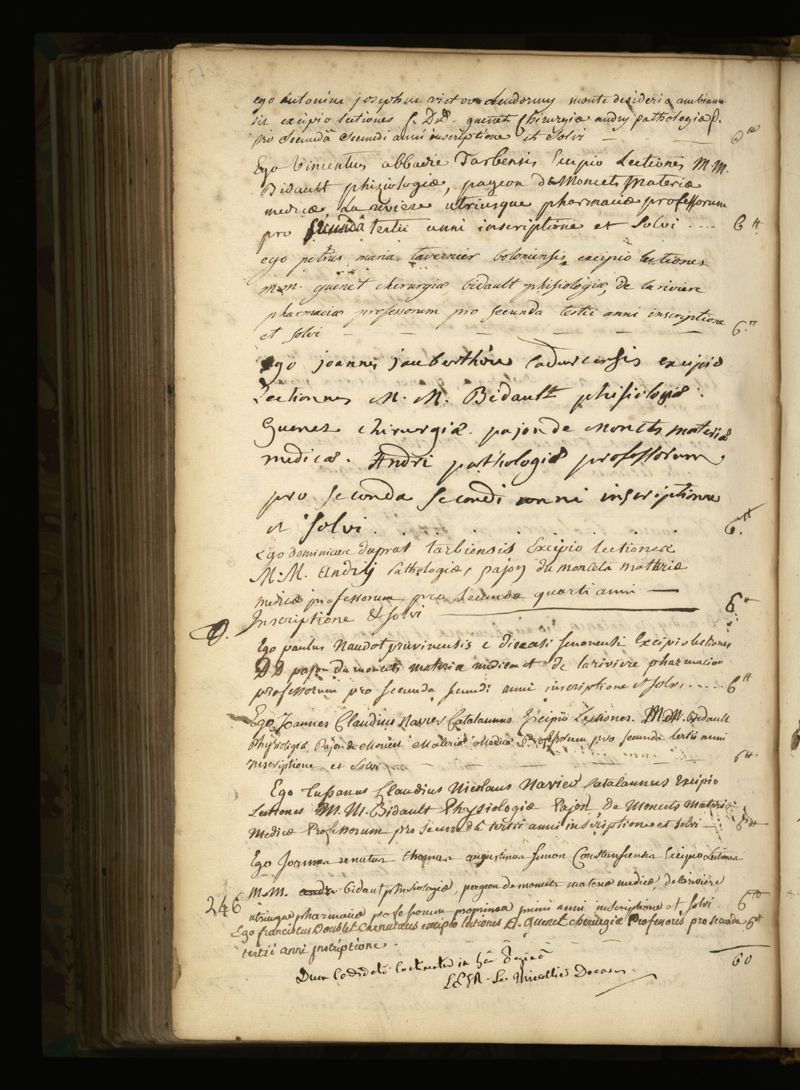 ego antonius josephus victor daudorny montedesideria ambianen
sis excipio lectiones DD. guenet chirurgiæ andry pathologiæ p.
pro secundâ secundi anni inscriptione et solvi — 6 tt
Ego Vincentius abbadie Tarbensis Excipio Lectiones M.M.
Bidault phisiologiæ, pajeon de Moncets Materiæ
medicæ, La riviere utriusque pharmaciæ professorum
pro secundâ tertii anni inscriptione et Solvi .... 6 tt
ego petrus maria tavernier boloniensis excipio lectiones
m.m. guenet chirurgiæ bidault phisiologiæ, de la riviere
pharmaciæ professorum pro secunda tertii anni inscriptione
et solvi — 6 tt
Ego joannes jauberthou cadurcensis excipio
Lectionnes M. M. Bidault phisiologiæ.
Guenez chirurgiæ. pajon de Moncets materiæ
medicæ. Andri pathologiæ professorum
pro seconda secondi anni inscriptionne
et solvi 6 tt
Ego dominicus duprat tarbiensis Excipio lectiones
M.M. Andrij Pathologiæ, pajon du moncets materiæ
medicæ professorum pro Secunda quarti anni —
Inscriptione & solvi 6 tt
D.
Ego paulus Naudot pruvinensis e diocesi senonensi Excipio lectiones
DD pajon du moncets materiæ medicæ et de lariviere pharmaciæ
professorum pro secunda secundi anni inscriptione et solvi ..... 6 tt
Ego Joannes Claudius Navier Catalaunus Excipio Lectiones. M.M. Bidault
Physiologiæ, Pajon de Moncets Materiæ Medicæ Professorum pro secunda tertii anni
inscriptione et solvi 6 tt
Ego Claudius Nicolaus Navier Catalaunus Excipio
Lectiones M. M. Bidault Physiologiæ Pajon De Moncets Materiæ
Medicæ Professorum pro Secundâ tertii anni inscriptione et solvi — 6 tt
Ego Joannes renatus thomas augustinus simon Constantiensis Excipio lectiones
M.M. bidaut phisiologiæ, pageon de moncets materiæ medicæ, de lariviere
246 utriusque pharmaciæ professorum pro primi anni inscriptione et solvi 6 tt
Ego franciscus Doublet Carnutæus excipio lectiones D. Guenet chirurgiæ Professoris pro secunda 6 tt
tertii anni inscriptione.
60
Decem Candidati in hâc paginâ
Le Decanus